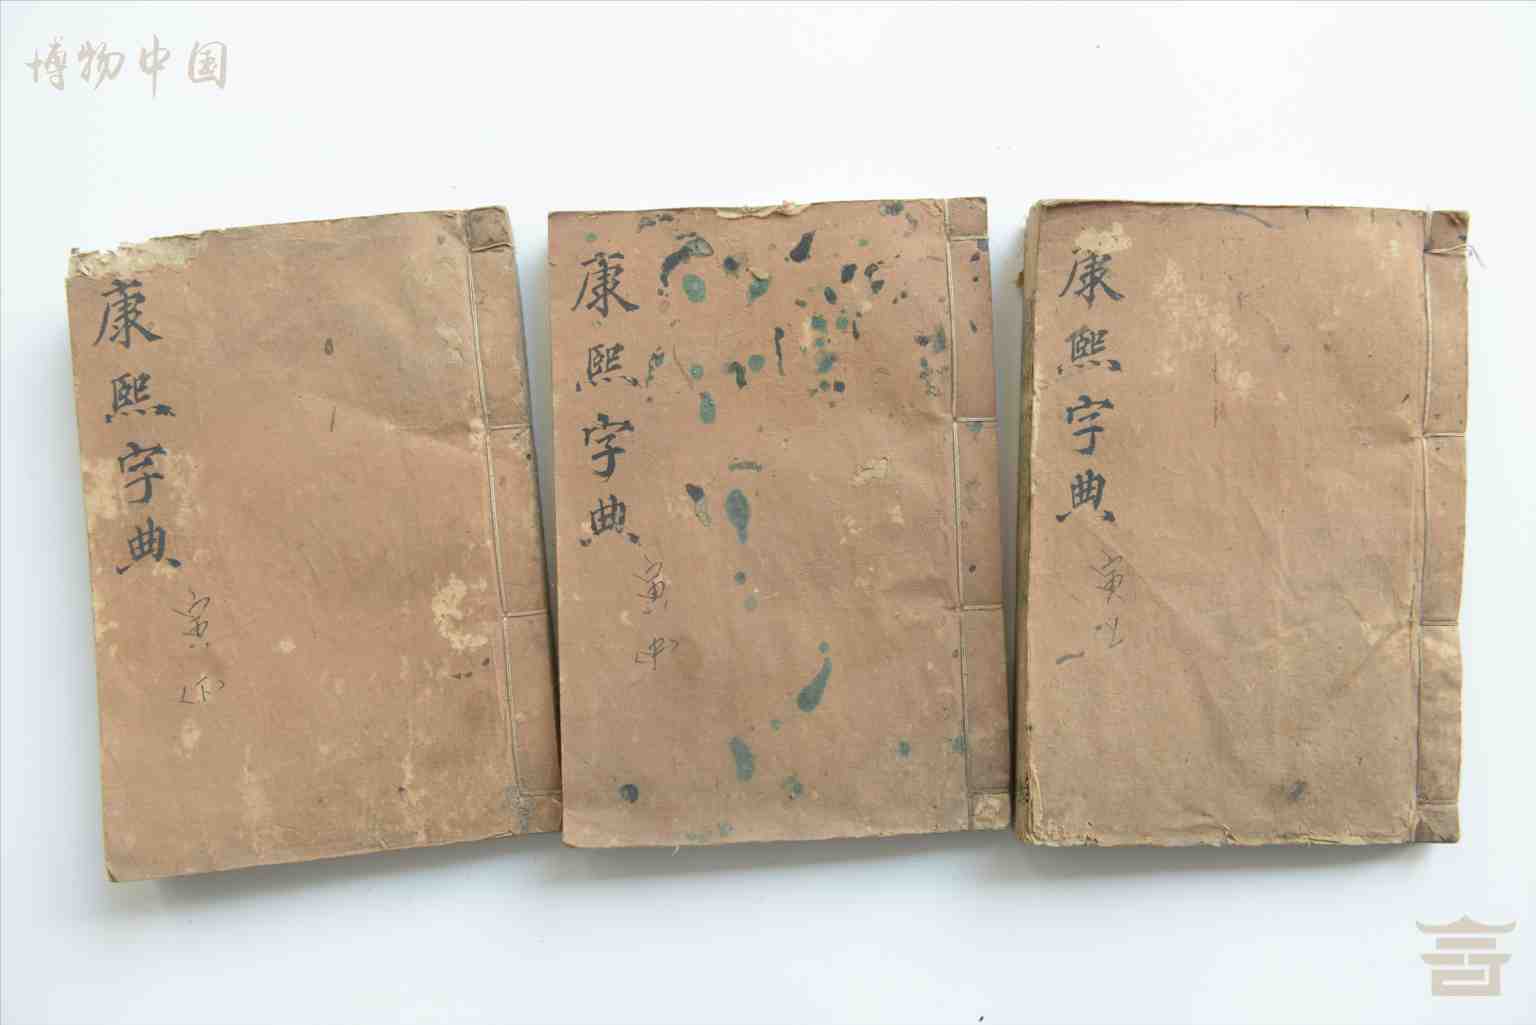 博物中国
康熙字典
寅
(下)
康熙字典
寅
(中)
康熙字典
寅
上